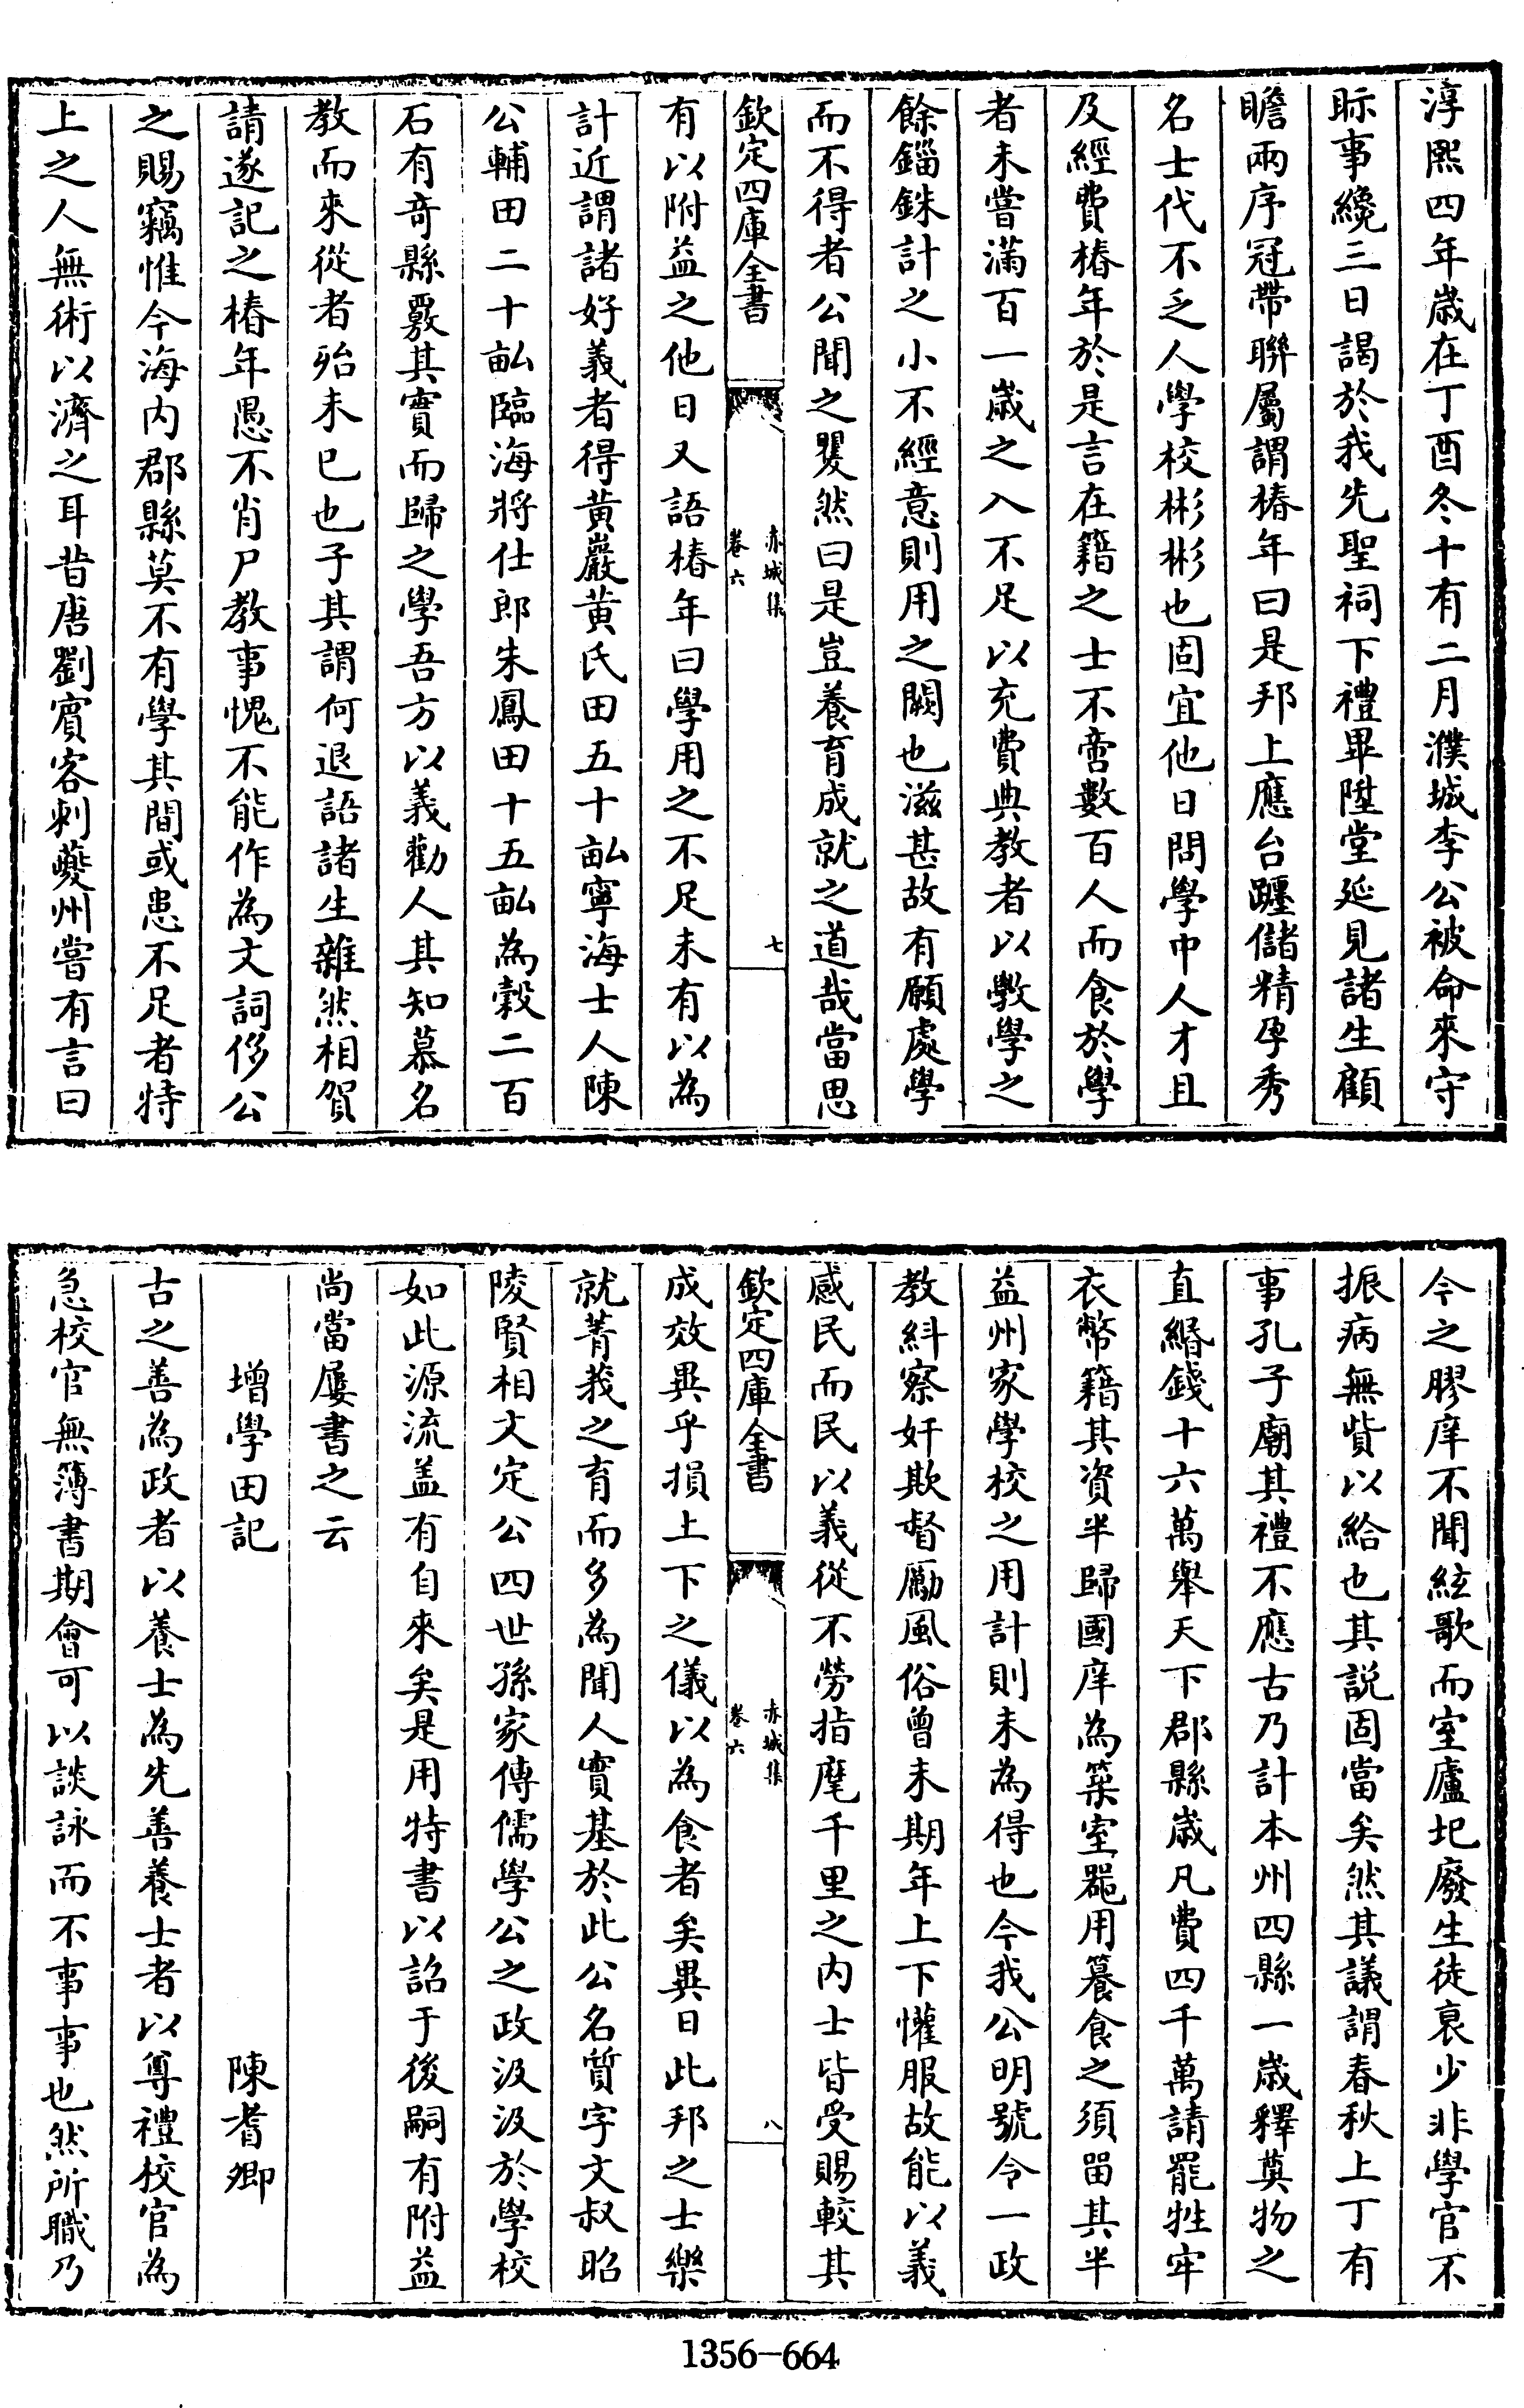 淳熙四年歳在丁酉冬十有二月濮城李公被命來守
眎事纔三日謁於我先聖祠下禮畢陞堂延見諸生顧
瞻兩序冠帶聯屬謂椿年曰是邦上應台躔儲精孕秀
名士代不乏人學校彬彬也固宜他日問學中人才且
及經費椿年於是言在籍之士不啻數百人而食於學
者未嘗滿百一歳之入不足以充費典教者以斆學之
餘錙銖計之小不經意則用之闕也滋甚故有願處學
而不得者公聞之矍然曰是豈養育成就之道哉當思
欽定四庫全書
赤城集
卷六
七
有以附益之他日又語椿年曰學用之不足未有以為
計近謂諸好義者得黄巖黄氏田五十畝寧海士人陳
公輔田二十畝臨海將仕郎朱鳳田十五畝為穀二百
石有竒縣覈其實而歸之學吾方以義勸人其知慕名
教而來從者殆未已也子其謂何退語諸生雜然相賀
請遂記之椿年愚不肖尸教事愧不能作為文詞侈公
之賜竊惟今海内郡縣莫不有學其間或患不足者特
上之人無術以濟之耳昔唐劉賓客刺夔州嘗有言曰
今之膠庠不聞絃歌而室廬圮廢生徒裒少非學官不
振病無貲以給也其説固當矣然其議謂春秋上丁有
事孔子廟其禮不應古乃計本州四縣一歳釋奠物之
直緡錢十六萬舉天下郡縣歳凡費四千萬請罷牲牢
衣幣籍其資半歸國庠為築室器用饔食之須留其半
益州家學校之用計則未為得也今我公明號令一政
教糾察奸欺督勵風俗曾未期年上下懽服故能以義
感民而民以義從不勞指麾千里之内士皆受賜較其
欽定四庫全書
赤城集
卷六
八
成效異乎損上下之儀以為食者矣異日此邦之士樂
就菁莪之育而多為聞人實基於此公名質字文叔昭
陵賢相文定公四世孫家傳儒學公之政汲汲於學校
如此源流盖有自來矣是用特書以詔于後嗣有附益
尚當屢書之云
増學田記 陳耆卿
古之善為政者以養士為先善養士者以尊禮校官為
急校官無簿書期會可以談詠而不事事也然所職乃
1356-664